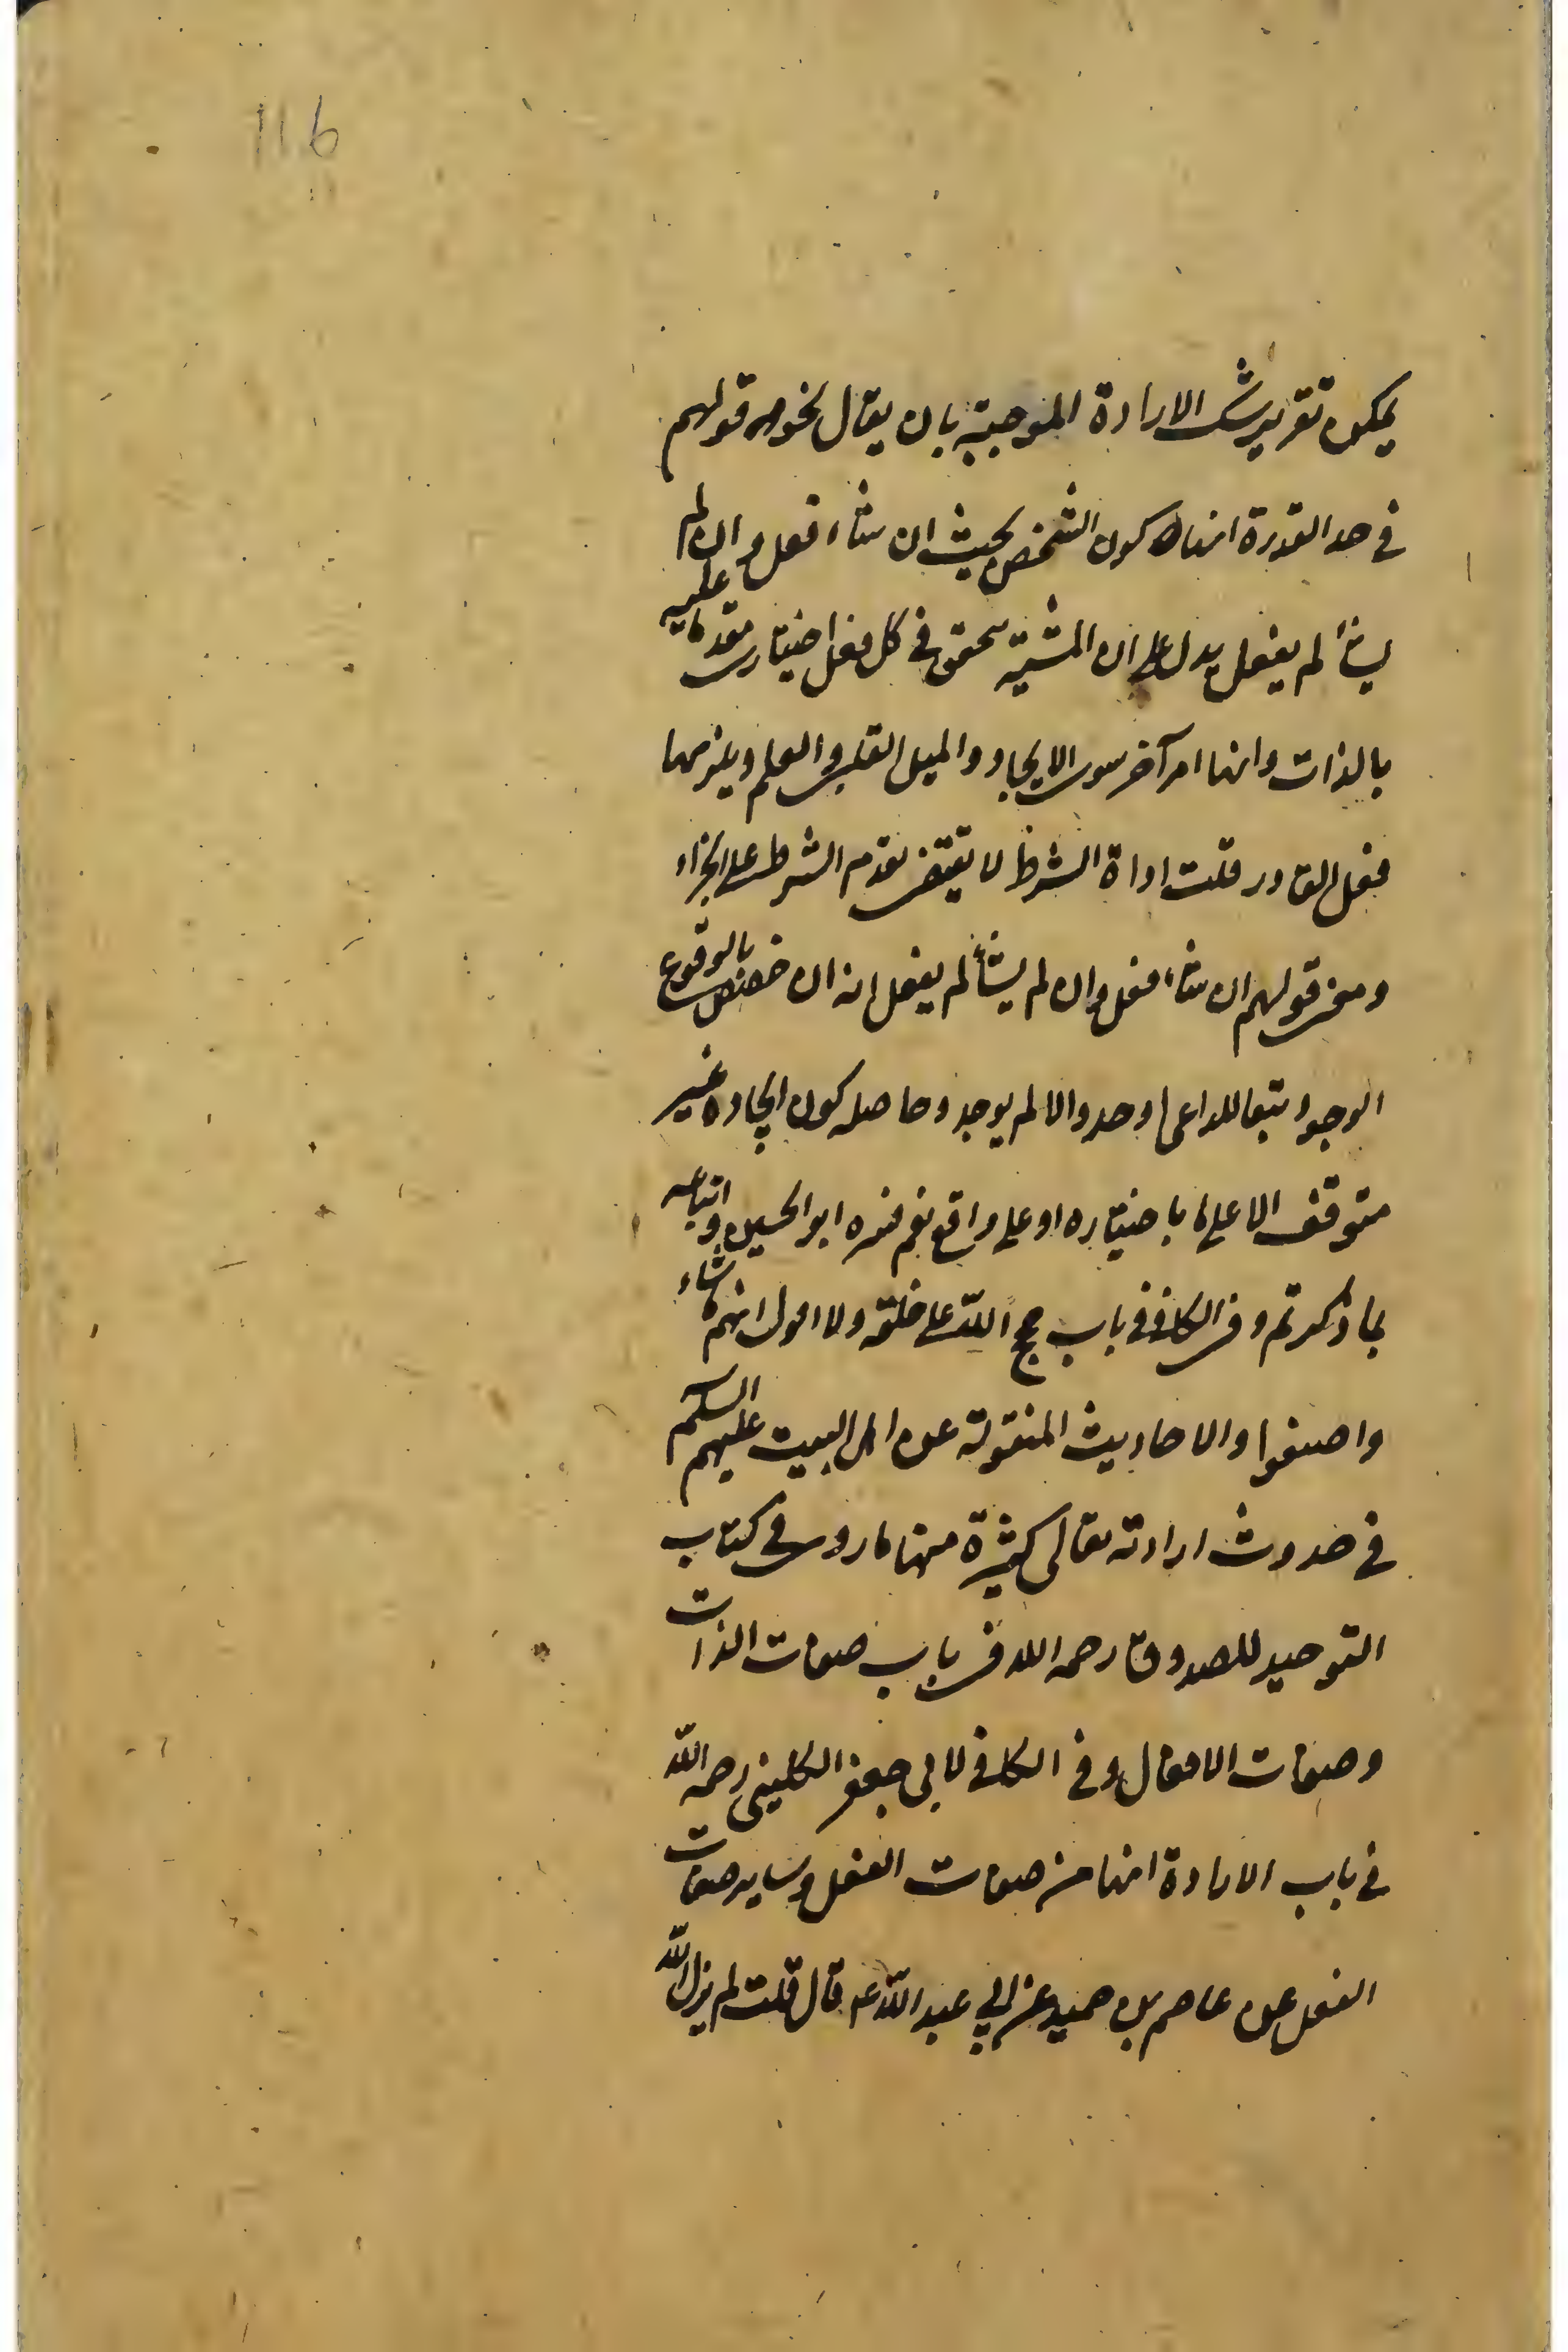 116
يمكن تقرير شك الارادة الموجبة بان يقال نحو قولهم
في حد القدرة انها كون الشخص بحيث ان شاء فعل وان لم
يشأ لم يفعل يدل على ان المشية يتحقق في كل فعل اختياري مقدما عليه
بالذات وانها امر آخر سوى الايجاد والميل القلبي والعلم ويلزمها
فعل القادر قلت اداة الشرط لا تقتضي تقدم الشرط على الجزاء
ومعنى قولهم ان شاء فعل وان لم يشأ لم يفعل انه ان خصص بالوقوع
الوجود تبعا للداعي اوجد والا لم يوجد وحاصله كون ايجاده غير
متوقف الا على ما باختياره او على واقع نعم فسره ابو الحسين واتباعه
بما ذكرتم وفي الكافي في باب حجج الله على خلقه ولا اقول انهم ما شاءوا
صنعوا والاحاديث المنقولة عن اهل البيت عليهم السلام
في حدوث ارادته تعالى كثيرة منها ما روى في كتاب
التوحيد للصدوق رحمه الله في باب صفات الذات
وصفات الافعال وفي الكافي لابي جعفر الكليني رحمه الله
في باب الارادة انها من صفات الفعل وساير صفات
الفعل عن عاصم بن حميد عن ابي عبد الله ع قال قلت لم يزل الله